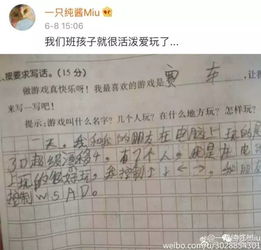 一只纯酱Miu
6-8 15:06
我们班孩子就很活泼爱玩了...
、按要求写话。(15分)
做游戏真快乐呀！我最喜欢的游戏是 赛 车 ，让
来写一写吧！
提示：游戏叫什么名字？几个人玩？在什么地方玩？怎样玩？
一天，我和我的朋友在电脑上玩的是
3D超级漂移4，有了个人。我是在电脑
上玩的很好玩，我控制↑↓←→，我朋友
控制WSAD。
weibo.com/u/3028854301